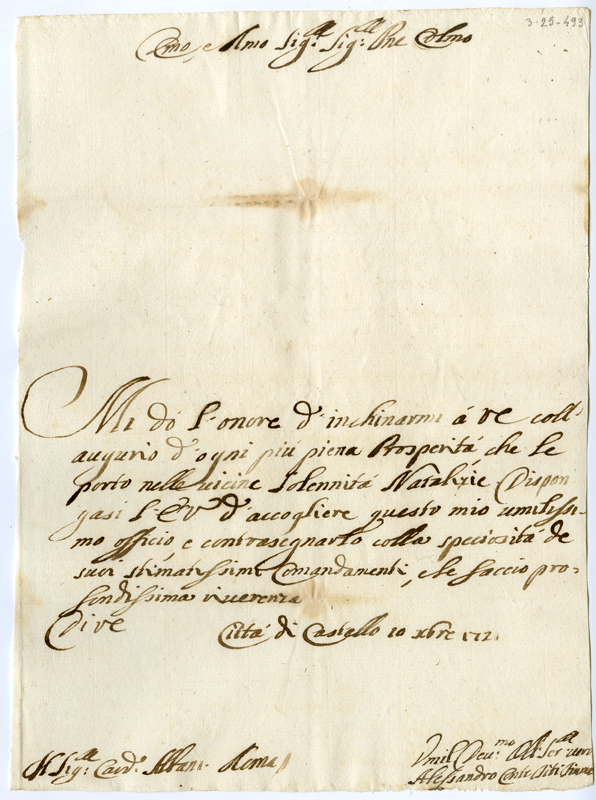 3-25-493
Emo, e Rmo Sig.r Sig.r Pne Colmo
Mi dò l'onore d'inchinarmi à VE coll'
augurio d'ogni più piena Prosperità che le
porto nelle vicine solennità Natalizie Dispon
gasi l'EV d'accogliere questo mio umilissi-
mo officio, e contrasegnarlo colla speciosità de
suoi stimatissimi Comandamenti, e le faccio pro-
fondissima riverenza
Di VE Città di Castello 10 xbre 172
Sig.r Card. Albani. Roma
Umil. Dev.mo Obl. Ser.
Alessandro